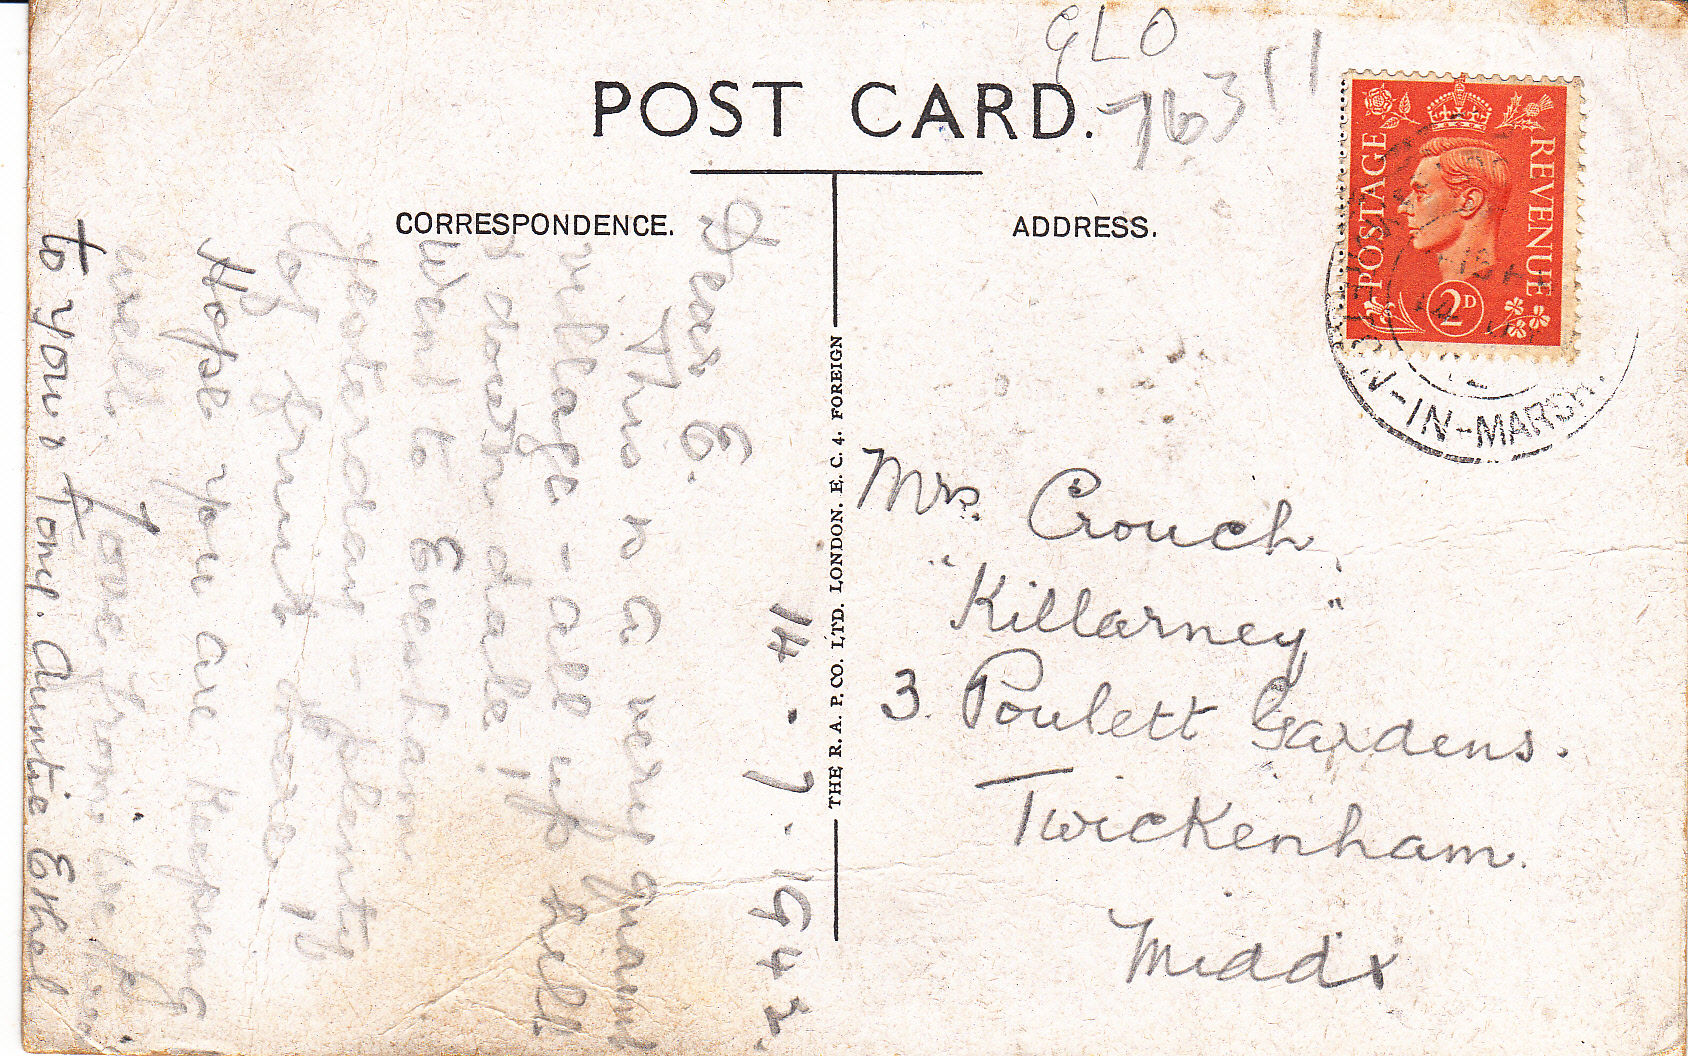 GLO
76311
POST CARD.
CORRESPONDENCE.
ADDRESS.
POSTAGE
REVENUE
2D
N-IN-MARSH.
THE R. A. P. CO. LTD. LONDON. E. C. 4. FOREIGN
14 . 7 . 1942.
Dear E.
This is a very quaint
village - all up hill
& down dale!
Went to Evesham
yesterday - plenty
of fruit there!
Hope you are keeping
well. Love from
to you & Tony. Auntie Ethel
Mrs. Crouch,
"Killarney"
3. Poulett Gardens.
Twickenham.
Middx